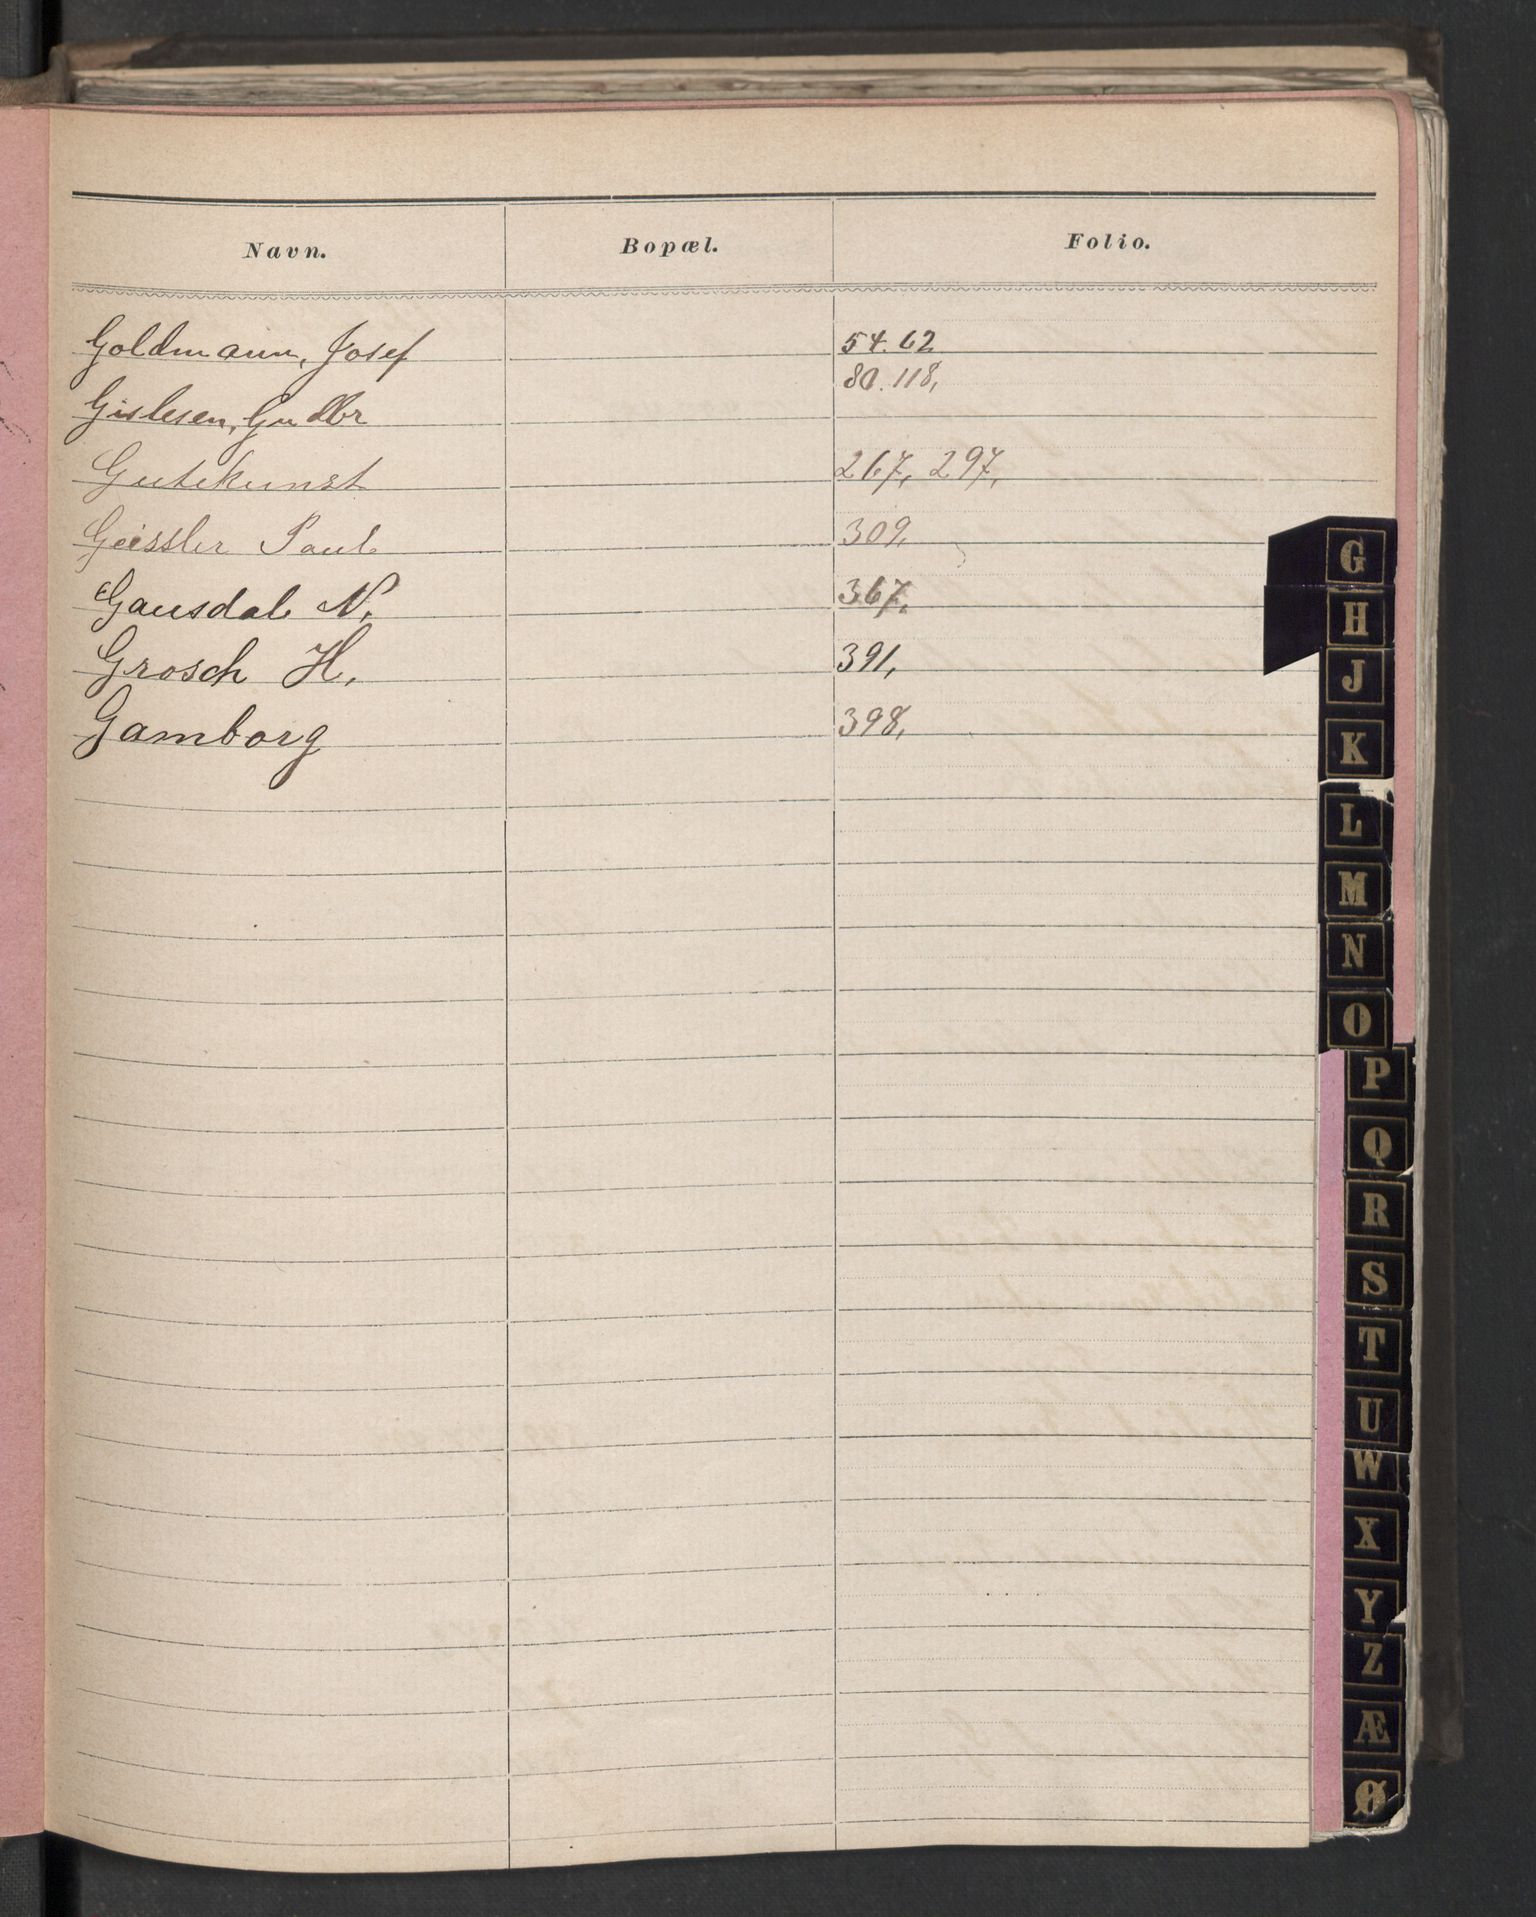 Navn. Bopæl. Folio.
Goldmann, Josef 54. 62
80. 118,
Gislesen, Gudbr
Gutekunst 267, 297,
Geissler Paul 309,
Gausdal N. 367,
Grosch H. 391,
Gamborg 398,
G
H
J
K
L
M
N
O
P
Q
R
S
T
U
W
X
Y
Z
Æ
Ø